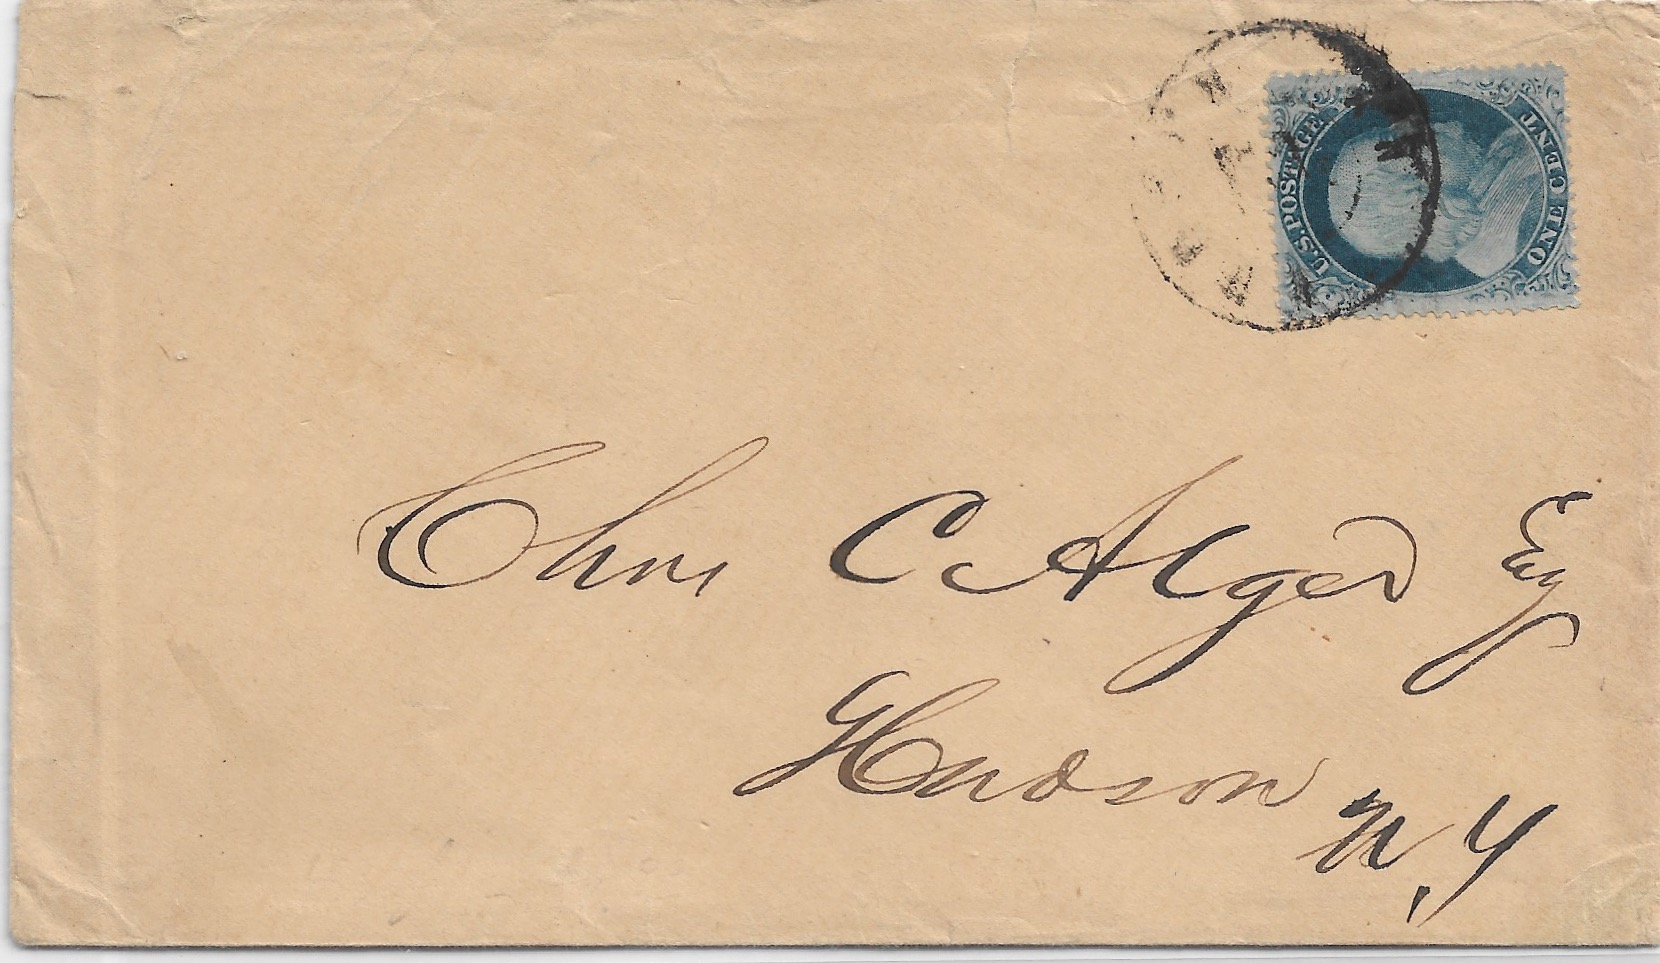 U.S. POSTAGE
ONE CENT
Chas C Alger Esq
Hudson
N.Y